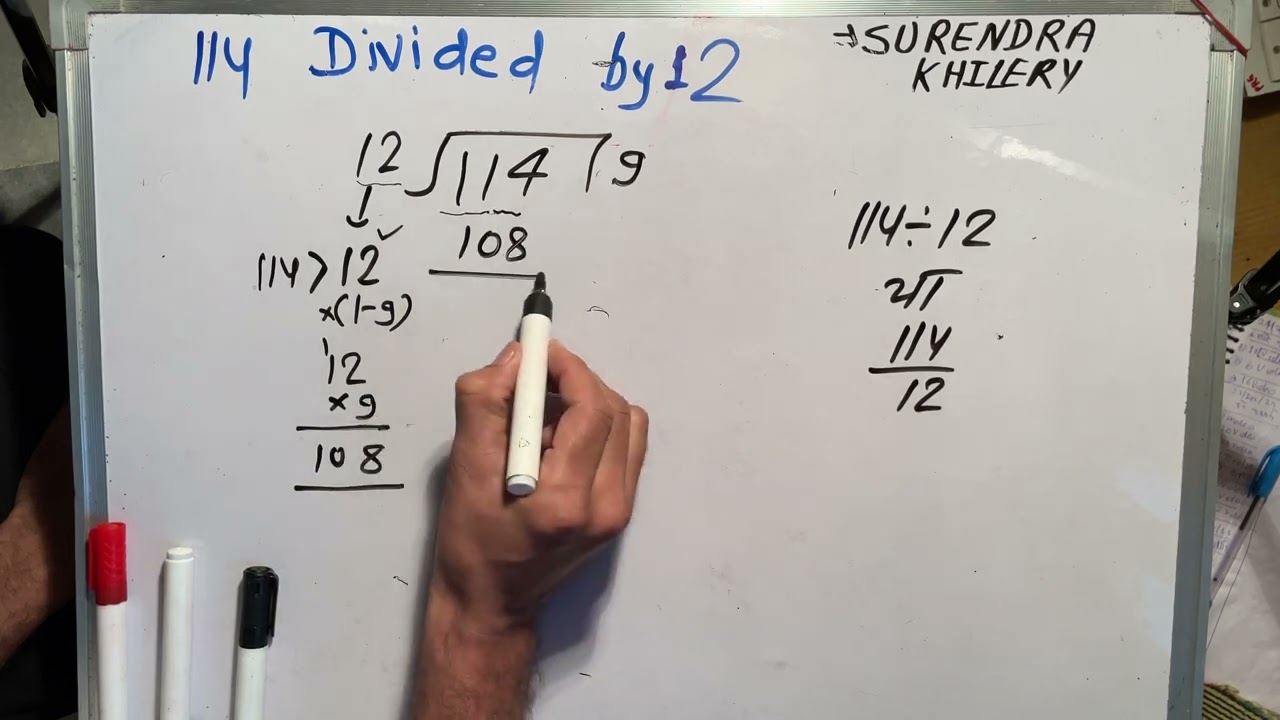 114 Divided by 12
→SURENDRA
KHILERY
12 114 9
108
114>12 ✓
×(1-9)
1
12
×9
108
114÷12
या
114
12